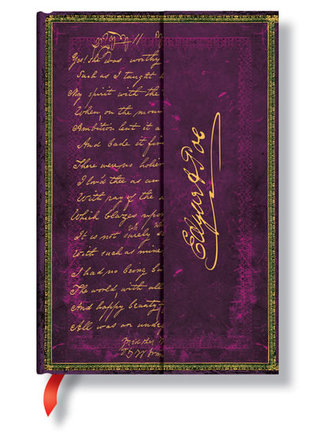 Yes! she was worthy
Such as I taught
My spirit with the
When, on the moun
Ambition lent it a
And bade it
There were no holier
I lov'd thee as an
With ray of the
Which blazes upon
It is not surely
With such as mine
I had no being bu
The world, with all
And happy beauty
All was an unde
Edgar A Poe